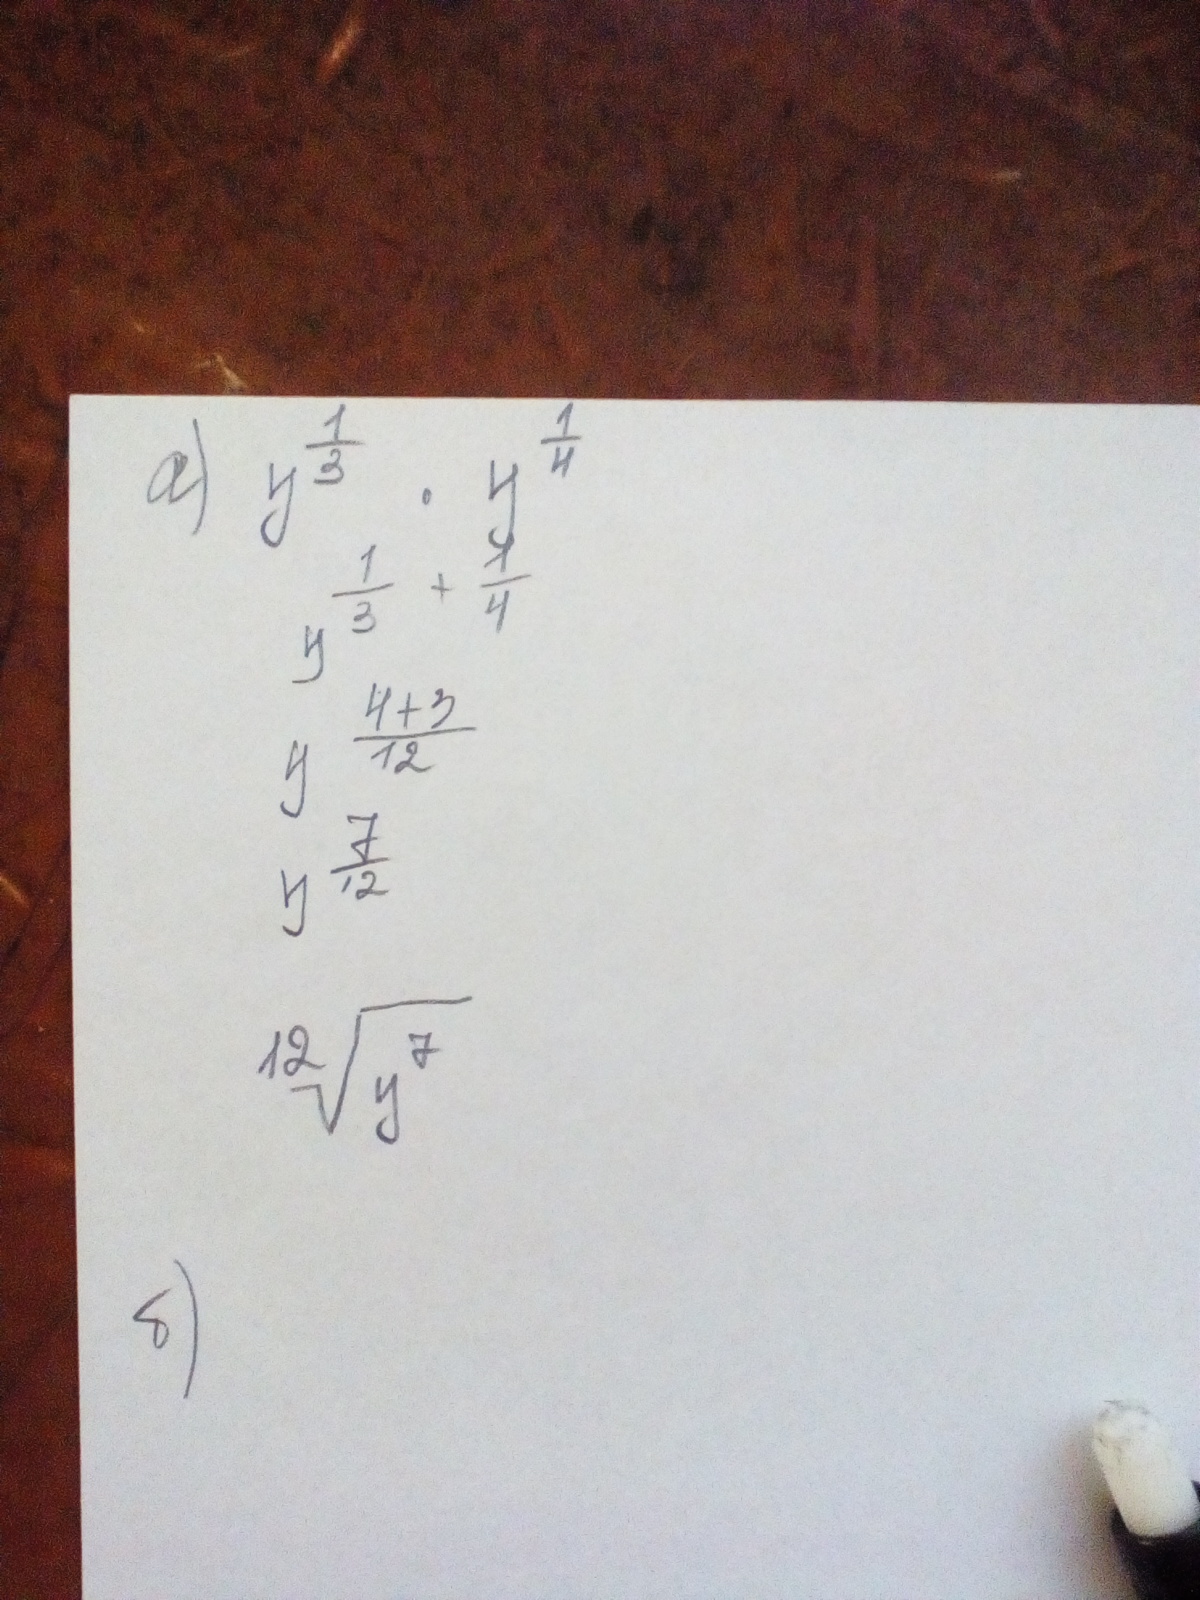 а) y^{\frac{1}{3}} · y^{\frac{1}{4}}
y^{\frac{1}{3} + \frac{1}{4}}
y^{\frac{4+3}{12}}
y^{\frac{7}{12}}
\sqrt[12]{y^7}
б)